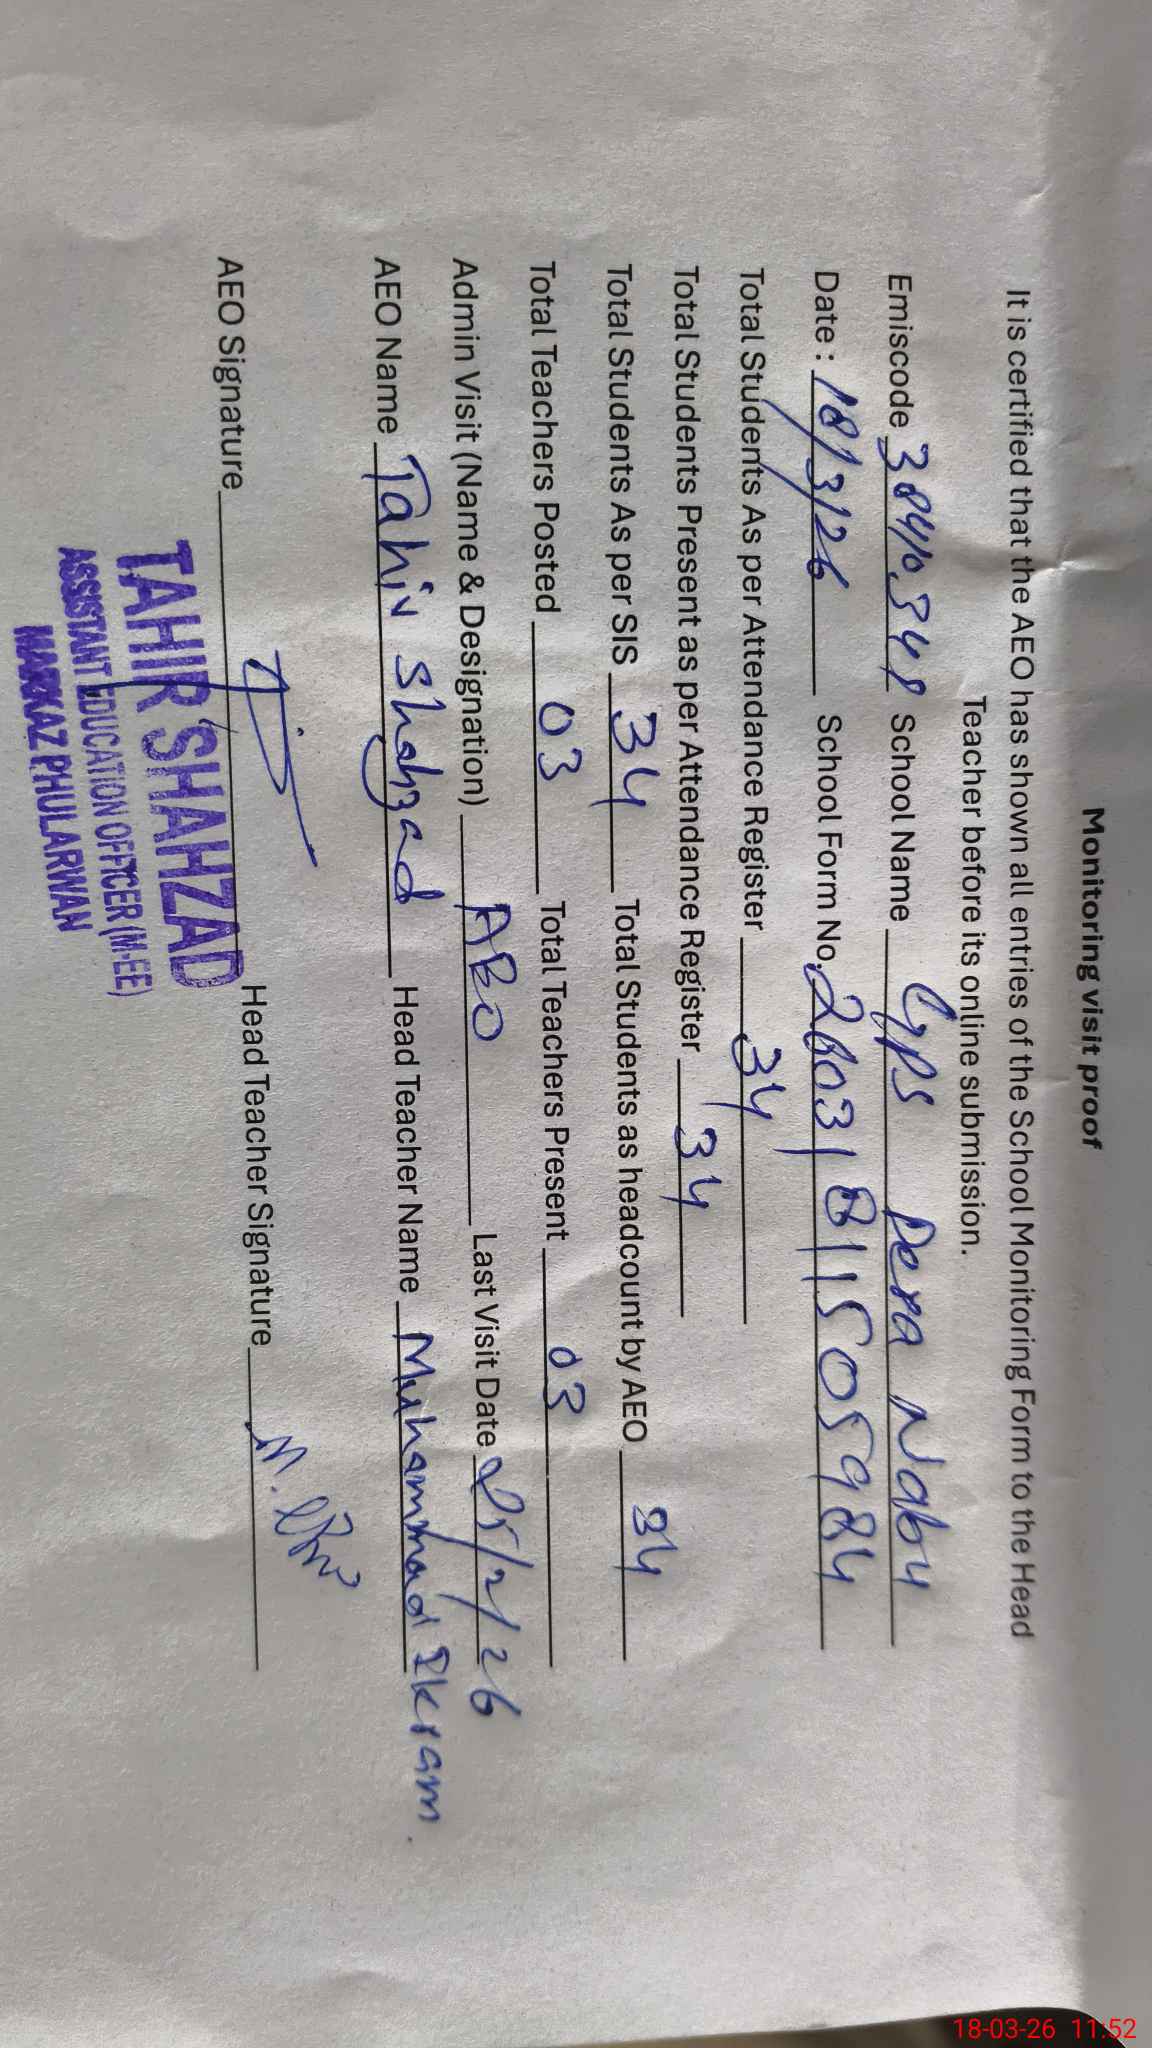 Monitoring visit proof
It is certified that the AEO has shown all entries of the School Monitoring Form to the Head
Teacher before its online submission.
Emiscode School Name Gps Dera Nabu
Date : 18/3/26 School Form No. 26031811505984
Total Students As per Attendance Register 34
Total Students Present as per Attendance Register 34
Total Students As per SIS 34 Total Students as headcount by AEO 34
Total Teachers Posted 03 Total Teachers Present 03
Admin Visit (Name & Designation) Last Visit Date /2/26
AEO Name Tahir Shahzad Head Teacher Name Muhammad Ikram.
AEO Signature Head Teacher Signature
TAHIR SHAHZAD
ASSISTANT EDUCATION OFFICER (M-EE)
MARKAZ PHULARWAN
18-03-26 11:52